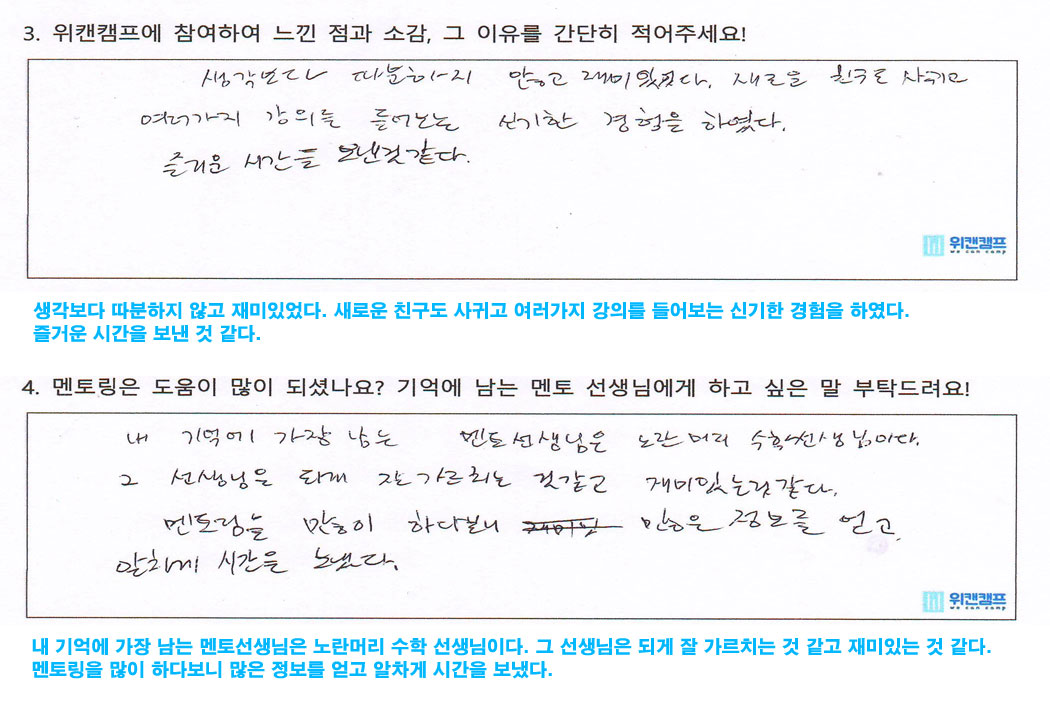 3. 위캔캠프에 참여하여 느낀 점과 소감, 그 이유를 간단히 적어주세요!
생각보다 따분하지 않고 재미있었다. 새로운 친구도 사귀고
여러가지 강의를 들어보는 신기한 경험을 하였다.
즐거운 시간을 보낸것같다.
위캔캠프
we can camp
생각보다 따분하지 않고 재미있었다. 새로운 친구도 사귀고 여러가지 강의를 들어보는 신기한 경험을 하였다.
즐거운 시간을 보낸 것 같다.
4. 멘토링은 도움이 많이 되셨나요? 기억에 남는 멘토 선생님에게 하고 싶은 말 부탁드려요!
내 기억에 가장 남는 멘토선생님은 노란머리 수학선생님이다.
그 선생님은 되게 잘가르치는 것같고 재미있는것같다.
멘토링을 많이 하다보니 많은 정보를 얻고,
알차게 시간을 보냈다.
위캔캠프
we can camp
내 기억에 가장 남는 멘토선생님은 노란머리 수학 선생님이다. 그 선생님은 되게 잘 가르치는 것 같고 재미있는 것 같다.
멘토링을 많이 하다보니 많은 정보를 얻고 알차게 시간을 보냈다.